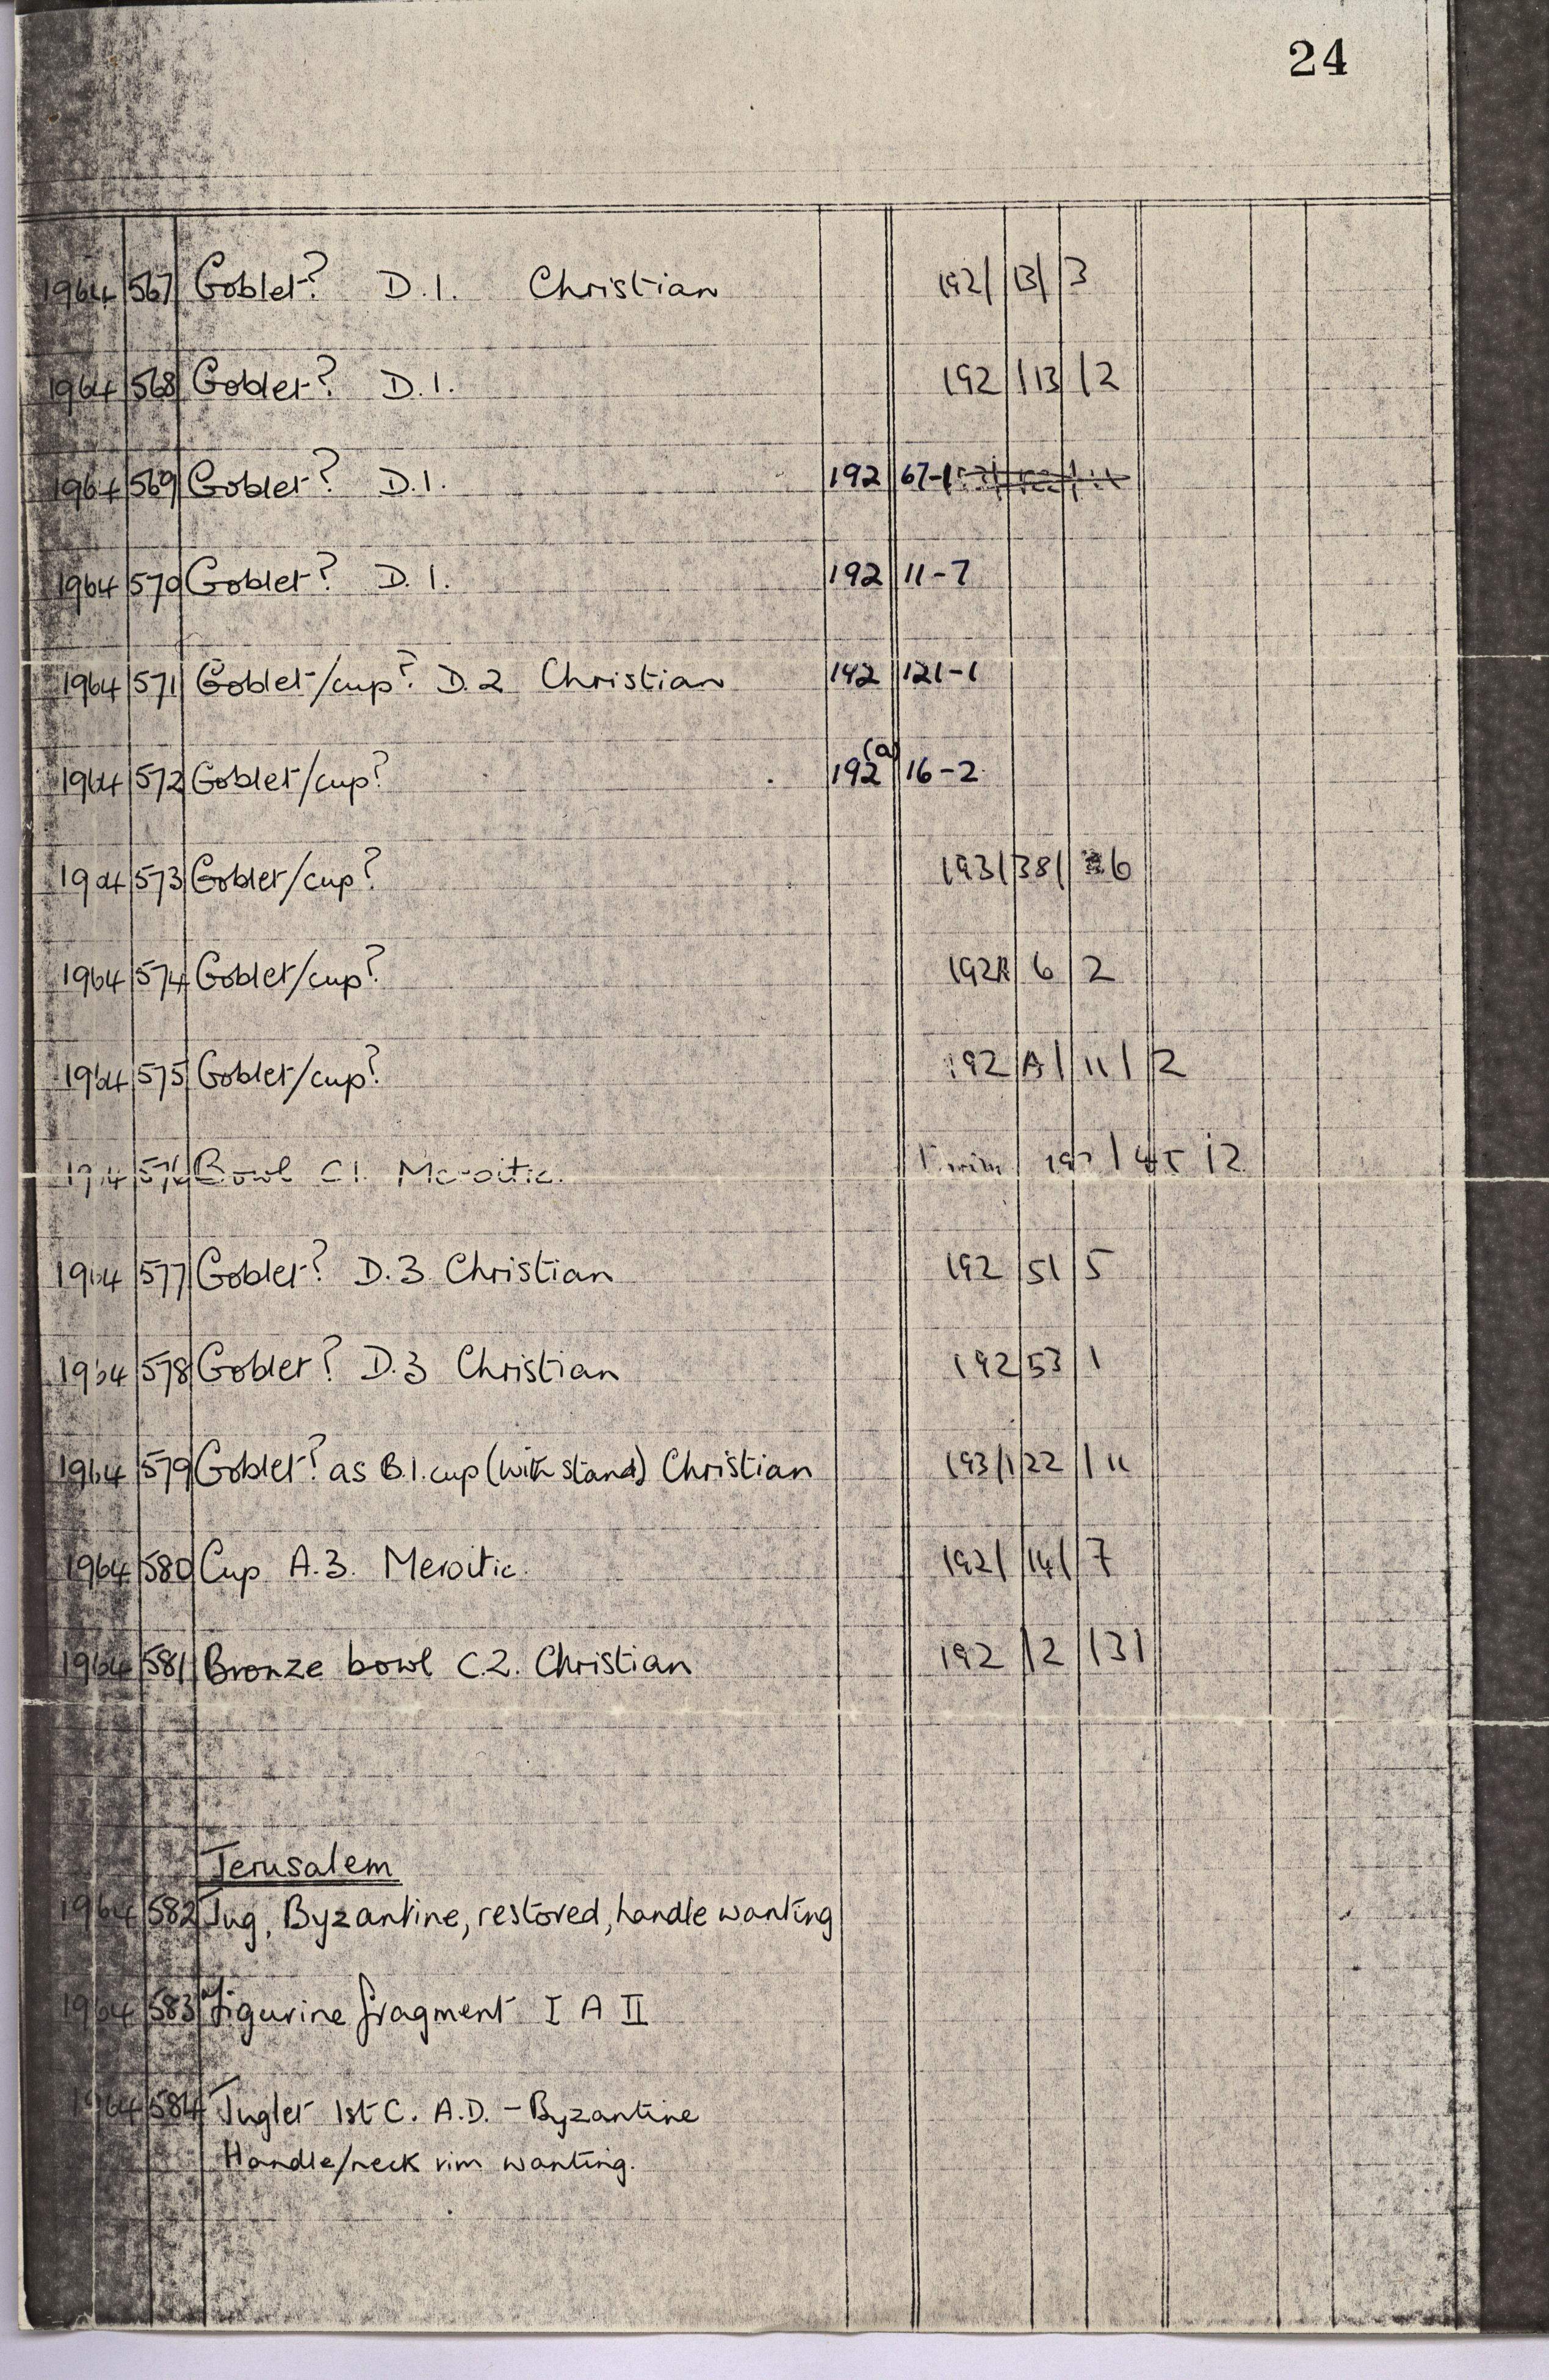 24
1964 567 Goblet? D.1. Christian 192/ 13/ 3
1964 568 Goblet? D.1. 192 /13 /2
1964 569 Goblet? D.1. 192 67-1
1964 570 Goblet? D.1. 192 11-7
1964 571 Goblet/cup? D.2 Christian 192 121-1
1964 572 Goblet/cup? 192(a) 16-2
1964 573 Goblet/cup? 193/38/ 6
1964 574 Goblet/cup? 192A 6 2
1964 575 Goblet/cup? 192 A/ 11/ 2
576 Bowl C1. Meroitic. /45 /2
1964 577 Goblet? D.3 Christian 192 51 5
1964 578 Goblet? D.3 Christian 192 53 1
1964 579 Goblet? as B.1. cup (with stand) Christian 193/122 /11
1964 580 Cup A.3. Meroitic. 192/ 14/ 7
1964 581 Bronze bowl C.2. Christian 192 /2 /31
Jerusalem
1964 582 Jug, Byzantine, restored, handle wanting
1964 583 Figurine fragment I A II
1964 584 Juglet 1st C. A.D. - Byzantine
Handle/neck rim wanting.